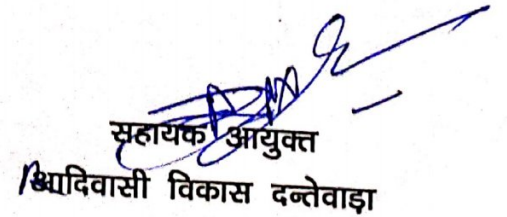 सहायक आयुक्त
आदिवासी विकास दन्तेवाड़ा